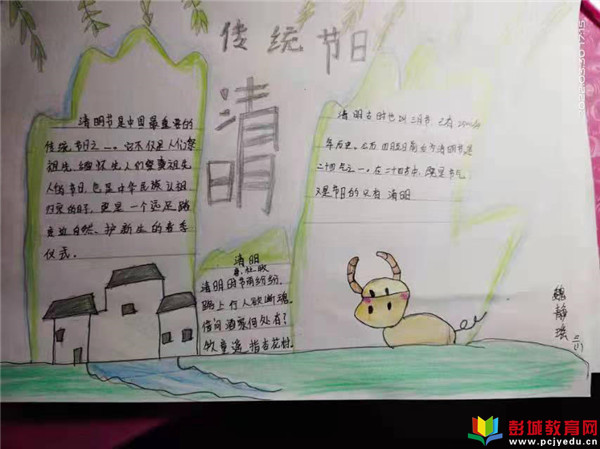 传统节日
清明
清明节是中国最重要的
传统节日之一。它不仅是人们祭
祖先缅怀先人们
人的节日,也是中华民族认祖
归宗的 更是一个远足踏
自然、护新生的春季
仪式。
清明
杜牧
清明时节雨纷纷,
路上行人欲断魂。
借问酒家何处有?
牧童遥指杏花村。
清明古时也 三月节,已有
年历史。公历四月五日前后为清明节是
二十四节气之一。在二十四节 中,既是节气
又是节日的只有清明
魏静
彭城教育网
www.pcjyedu.cn